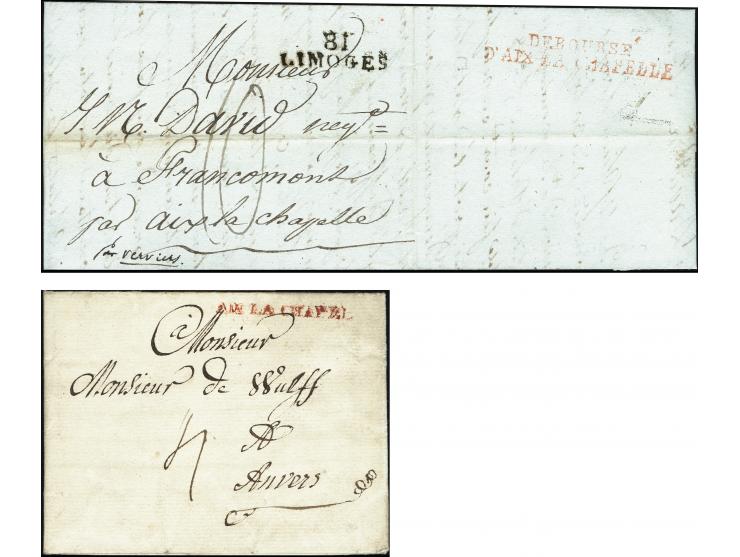 81
LIMOGES
DEBOURSÉ
D'AIX LA CHAPELLE
Monsieur
J. N. David neg.t
10
à Francomont
par aix la chapelle
par verviers.
AIX LA CHAPEL
à Monsieur
Monsieur de Wulff
4
A
Anvers